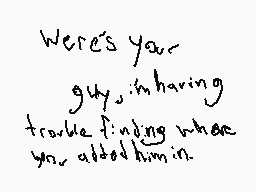 Were's your
guy, i'm having
trouble finding where
you added him in.